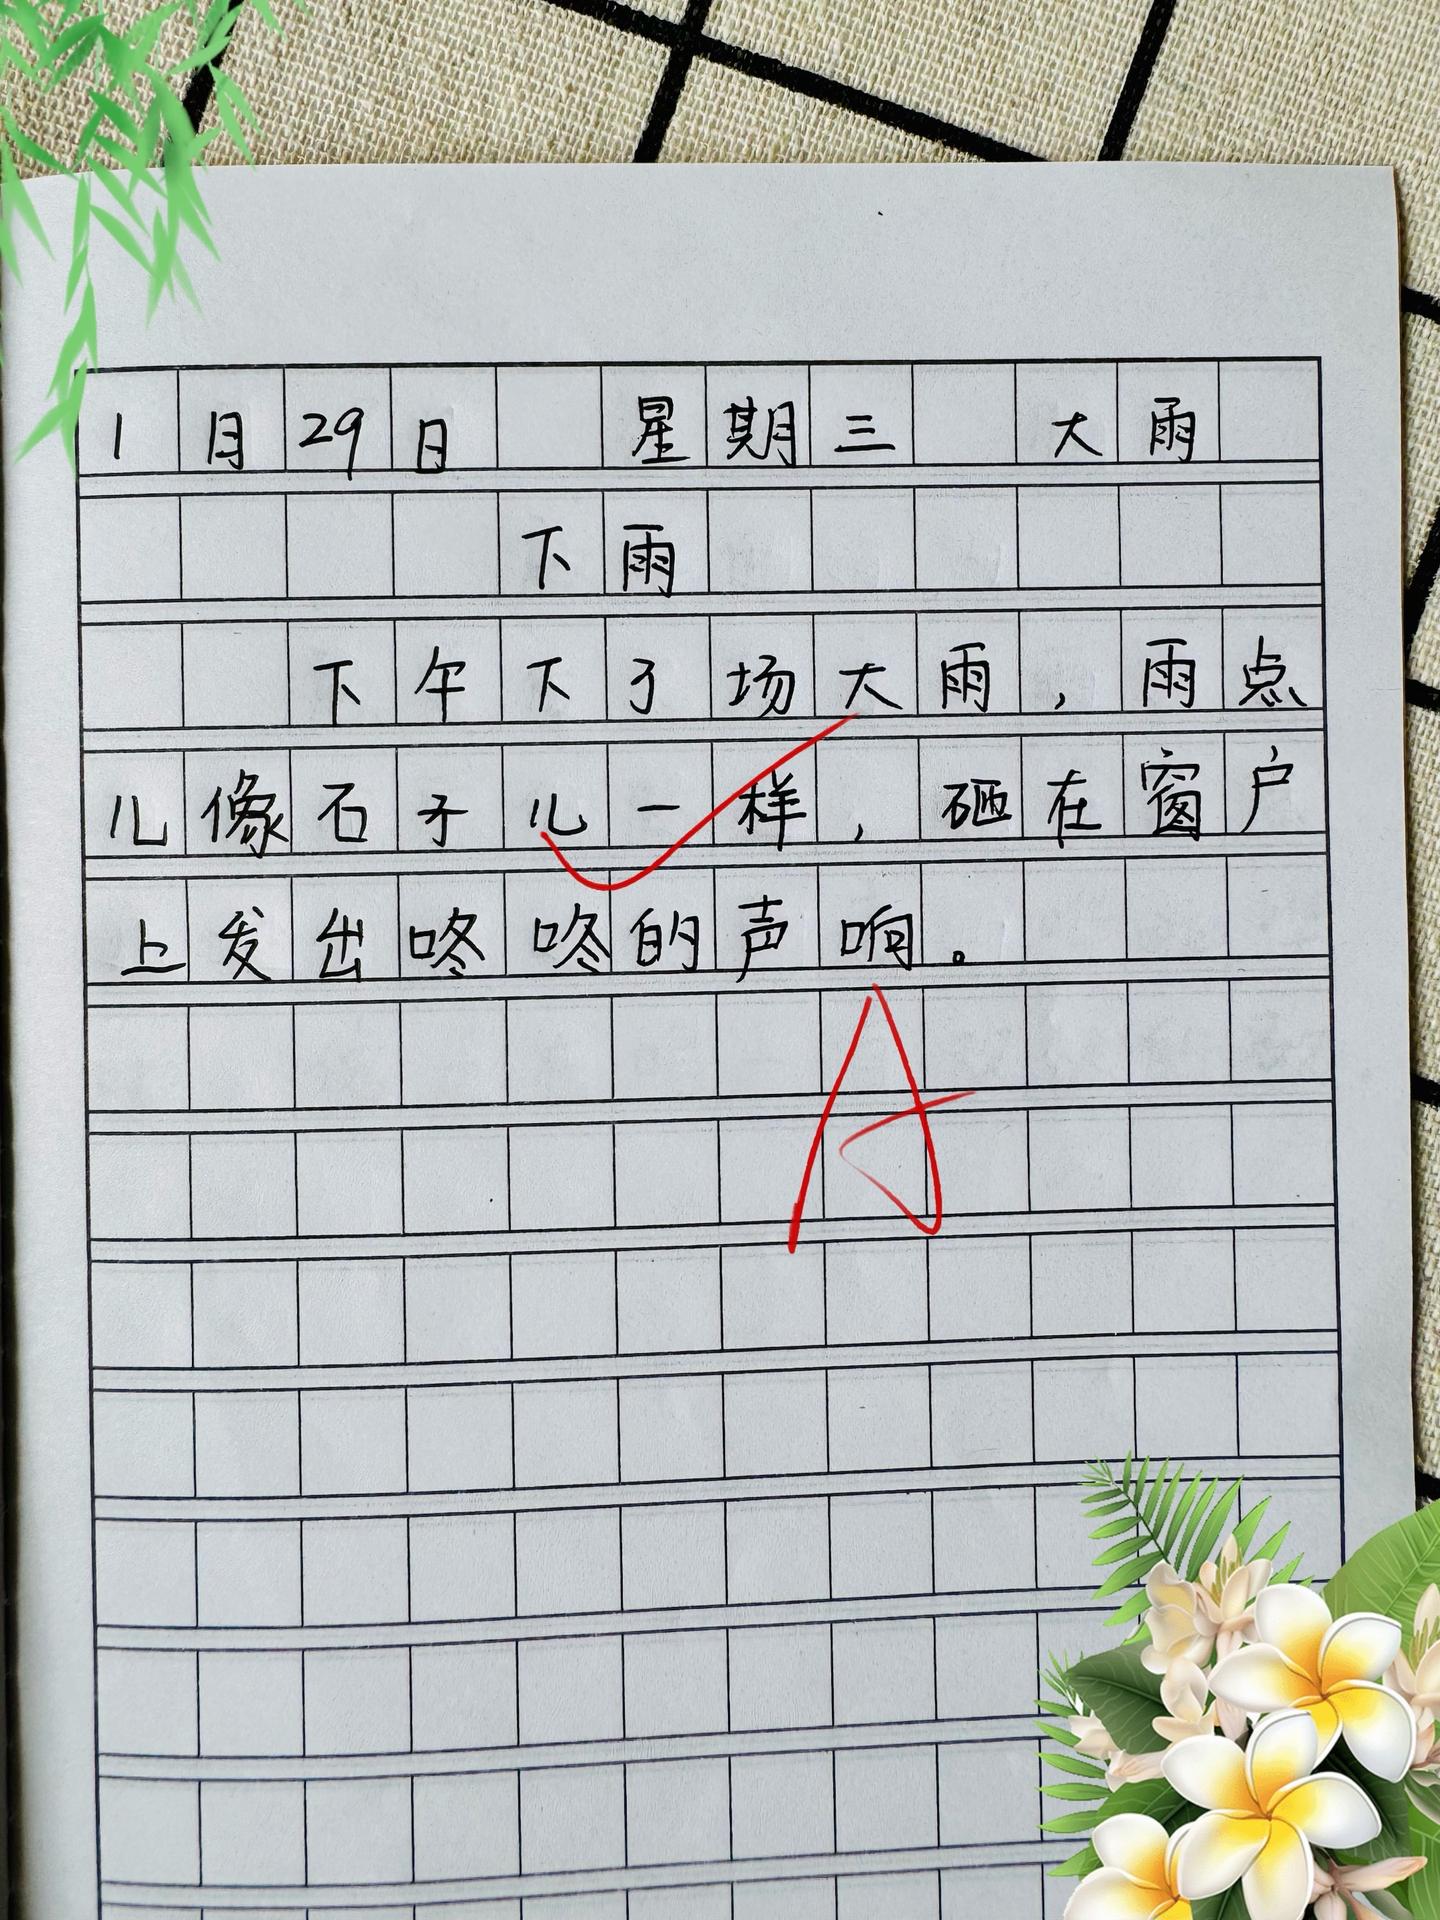 1月29日 星期三 大雨
下雨
下午下了场大雨，雨点
儿像石子儿一样，砸在窗户
上发出咚咚的声响。
A